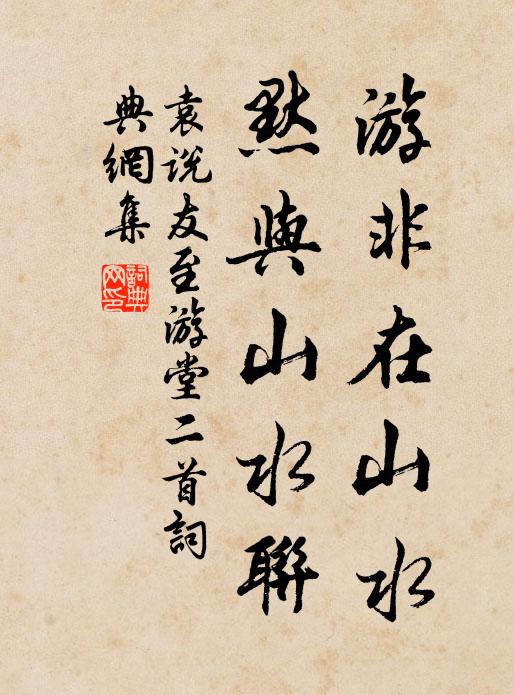 游非在山水
默與山水聯
袁说友至游堂二首詞
典網集
詞典網印